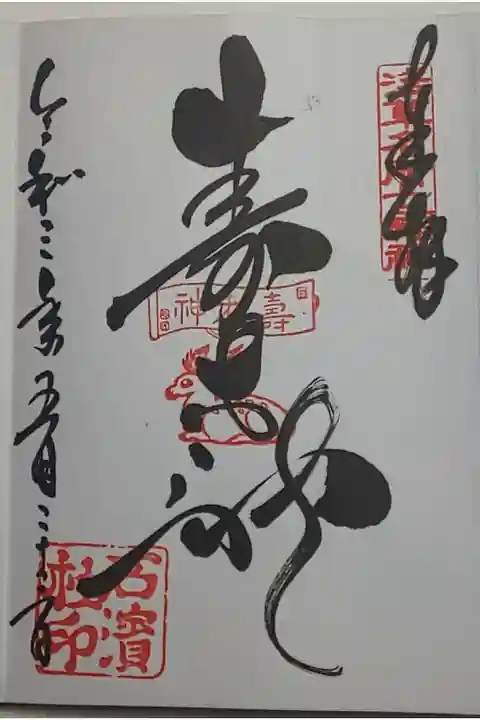 奉拝
寿老神
壽老神
令和三年五月二十日
石濱
社印